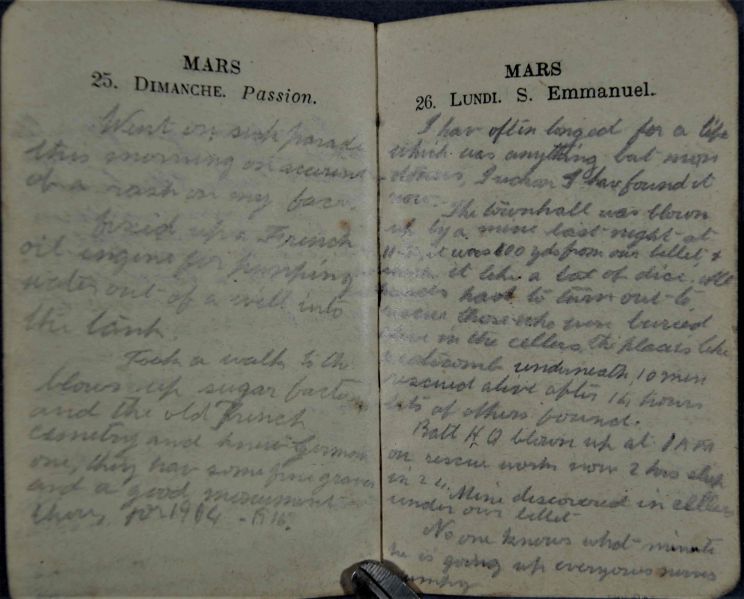 MARS
25. DIMANCHE. Passion.
Went on sick parade
this morning on account
of a rash on my face.
fixed up a French
oil engine for pumping
water out of a well into
the tank.
Took a walk to the
blown up sugar factory
and the old French
cemetry and German
one, they hav some fine graves
and a good monument
there for 1914 - 1915.
MARS
26. LUNDI. S. Emmanuel.
I hav often longed for a life
which was anything but mon
otonous, I reckon I hav found it
now.
The townhall was blown
up by a mine last night at
it was 800 yds from our billet &
it like a lot of dice. All
hands had to turn out to
rescue those who were buried
in the cellers, the place is like
a catacomb underneath, 10 men
rescued alive after 14 hours
lots of others found.
Batt H Q blown up at 1 AM
on rescue work now 2 hrs sleep
in 24. Mine discovered in cellers
under our billet
No one knows what minute
he is going up everyones nerves
jumpy